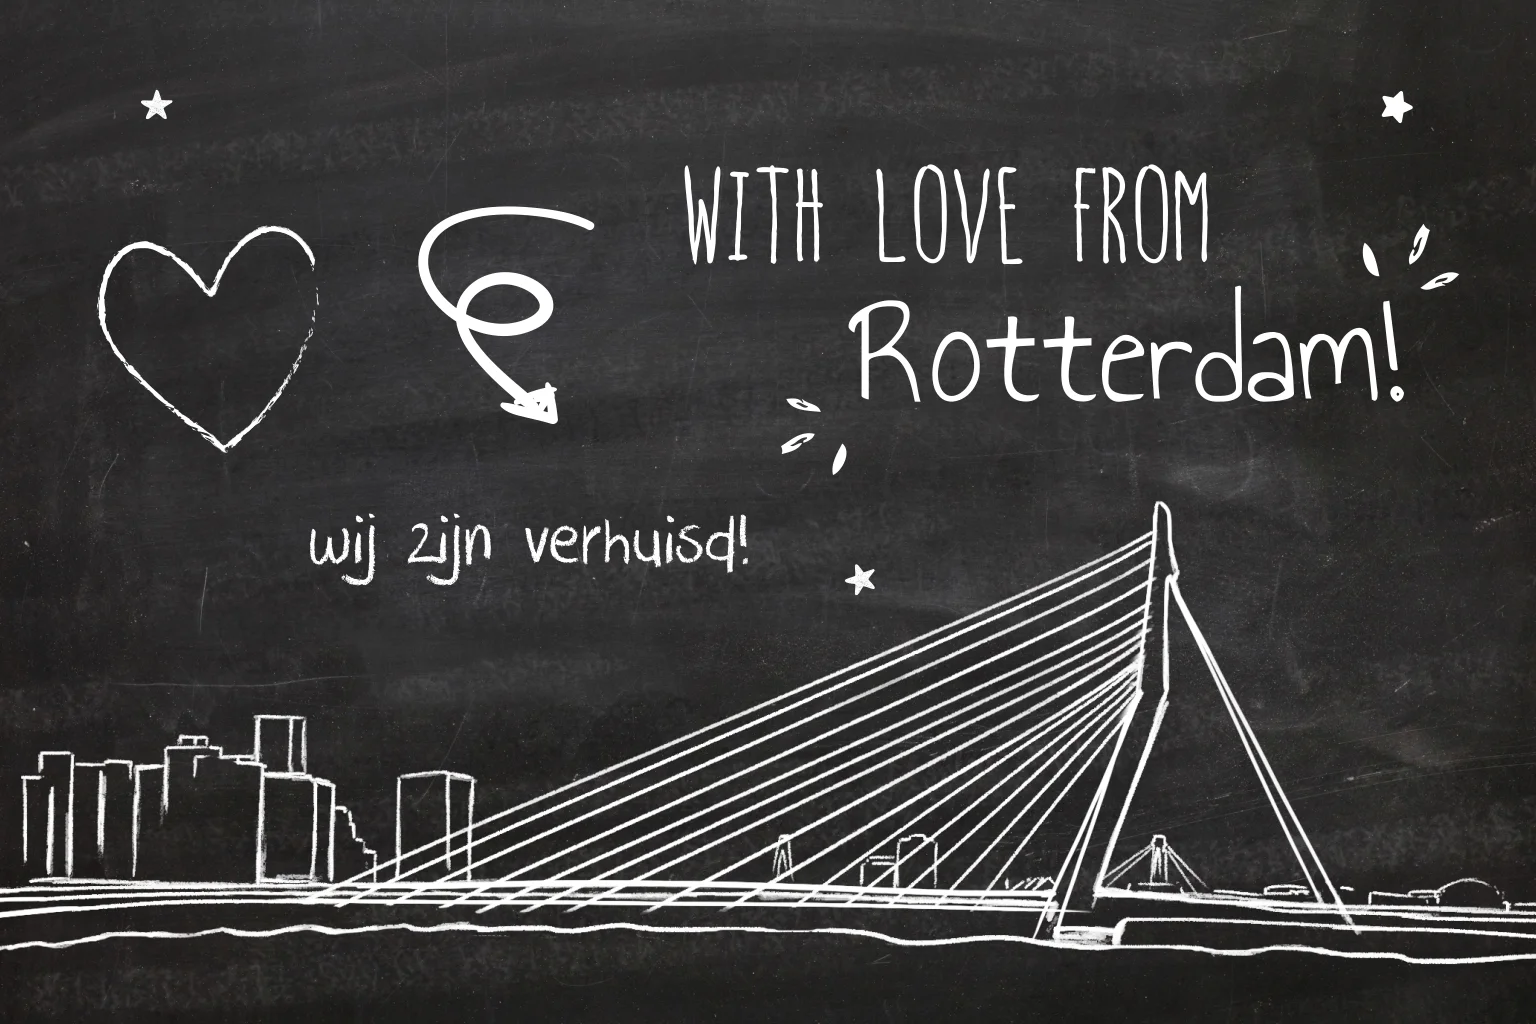 WITH LOVE FROM
Rotterdam!
wij zijn verhuisd!